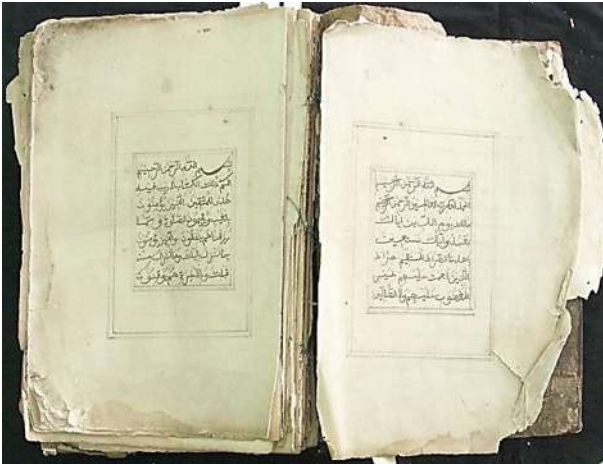 بسم الله الرحمن الرحيم
الحمد لله رب العالمين الرحمن الرحيم
ملك يوم الدين اياك
نعبد واياك نستعين
اهدنا الصراط المستقيم صراط
الذين انعمت عليهم غير
المغضوب عليهم ولا الضالين
بسم الله الرحمن الرحيم
الم ذلك الكتاب لا ريب فيه
هدى للمتقين الذين يؤمنون
بالغيب ويقيمون الصلوة ومما
رزقناهم ينفقون والذين يؤمنون
بما انزل اليك وما انزل من
قبلك وبالاخرة هم يوقنون